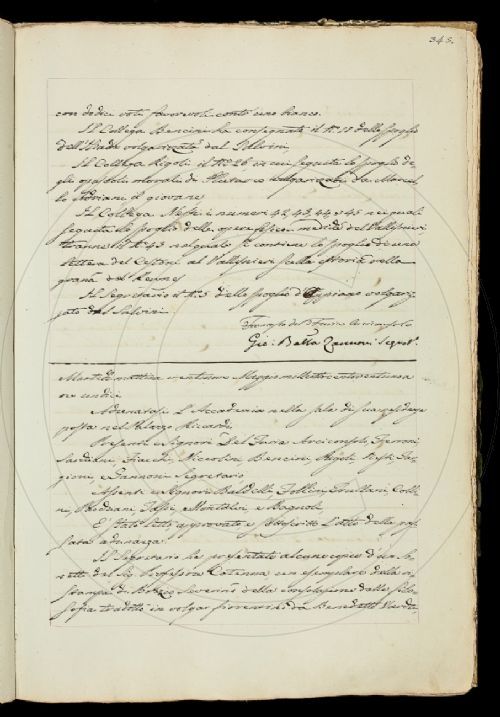 343.
con dodici voti favorevoli contr'uno bianco.
Il Collega Bencini ha consegnato il N. 17 dello spoglio
dell'Iliade volgarizzata dal Salvini
Il Collega Rigoli il N. 26, in cui seguita lo spoglio de
gli opuscoli morali di Plutarco volgarizzati da Marcel
lo Adriani il giovane
Il Collega Nesti i numeri 42, 43, 44, e 45 nei quali
seguita lo spoglio delle opere fisico-mediche del Vallisnieri
tranne il N. 45 nel quale si contiene lo spoglio di una
lettera del Cestoni al Vallisnieri sulla storia della
grana del Kermes
Il Segretario il N. 3 dello spoglio d'Appiano volgariz
zato dal Salvini
Francesco del Furia Arciconsolo
Gio: Batta Zannoni Segret.
Martedì mattina ventinove Maggio mille ottocento ventuno a
ore undici
Adunatasi l'Accademia nella sala di sua residenza
posta nel Palazzo Riccardi
Presenti i Signori Del Furia Arciconsolo,
Sarchiani, Fiacchi, Niccolini, Bencini, Rigoli, Nesti,
e Zannoni Segretario
Assenti i Signori Baldelli, Follini, Frullani, Colle
e Bagnoli
È stato letto, approvato e sottoscritto l'atto della pas
sata adunanza.
Il Segretario ha presentato alcune copie d'un So
netto del Sig. Professor Catenna, un esemplare della ri
stampa di Boezio Severino della consolazione della filo
sofia tradotto in volgar fiorentino da Benedetto Varchi